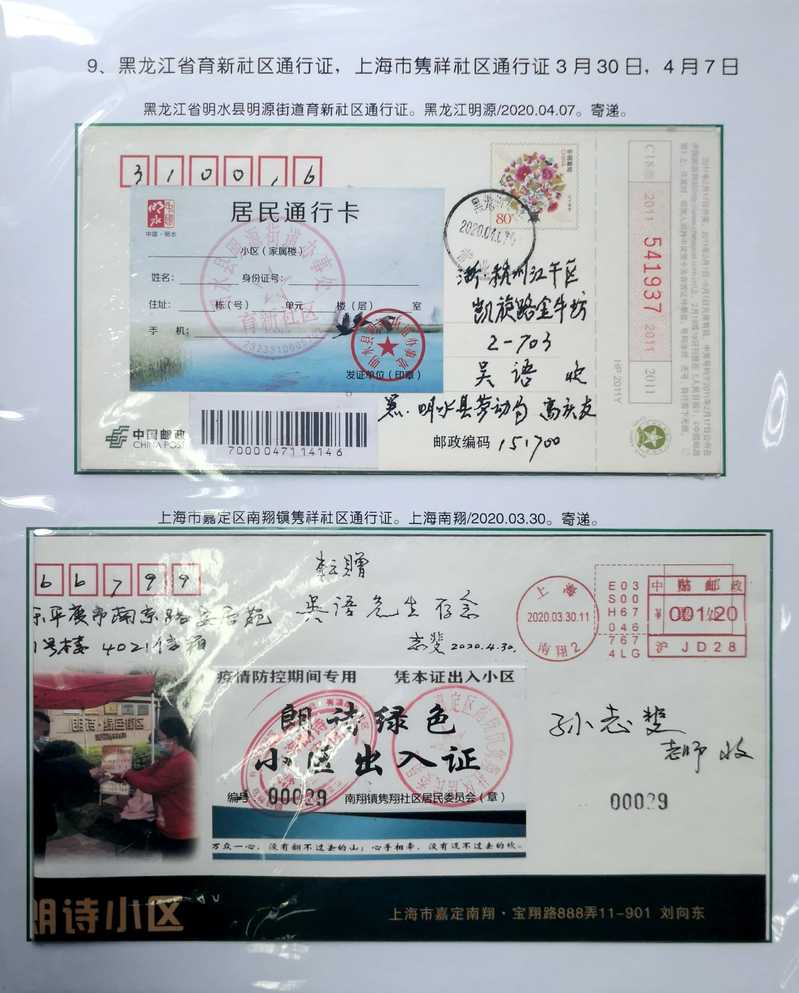 9、黑龙江省育新社区通行证，上海市隽祥社区通行证3月30日，4月7日
黑龙江省明水县明源街道育新社区通行证。黑龙江明源/2020.04.07。寄递。
310016
中国邮政
CHINA
80分
黑龙江
2020.04.07
明水
中国·明水
居民通行卡
小区（家属楼）
姓名： 身份证号：
住址： 栋（号） 单元 楼（层） 室
手 机：
发证单位（印章）
明水县明源街道办事处
育新社区
浙·杭州江干区
凯旋路金牛坊
2-703
吴语 收
黑·明水县劳动局 高庆友
邮政编码 151700
中国邮政
CHINA POST
70000471141 46
2011
541937
2011
2011
HP 2011Y
上海市嘉定区南翔镇隽祥社区通行证。上海南翔/2020.03.30。寄递。
66799
南京路
号楼 402信箱
敬赠
吴语先生存念
志斐 2020.4.30.
上海
2020.03.30.11
南翔2
E03
S00
H67
046
767
4LG
中国邮政
¥ 001.20
沪 JD28
疫情防控期间专用 凭本证出入小区
朗诗绿色
小区出入证
编号：00029 南翔镇隽翔社区居民委员会（章）
万众一心，没有翻不过去的山；心手相牵，没有迈不过去的坎。
孙志斐
老师 收
00029
朗诗小区
上海市嘉定南翔·宝翔路888弄11-901 刘向东